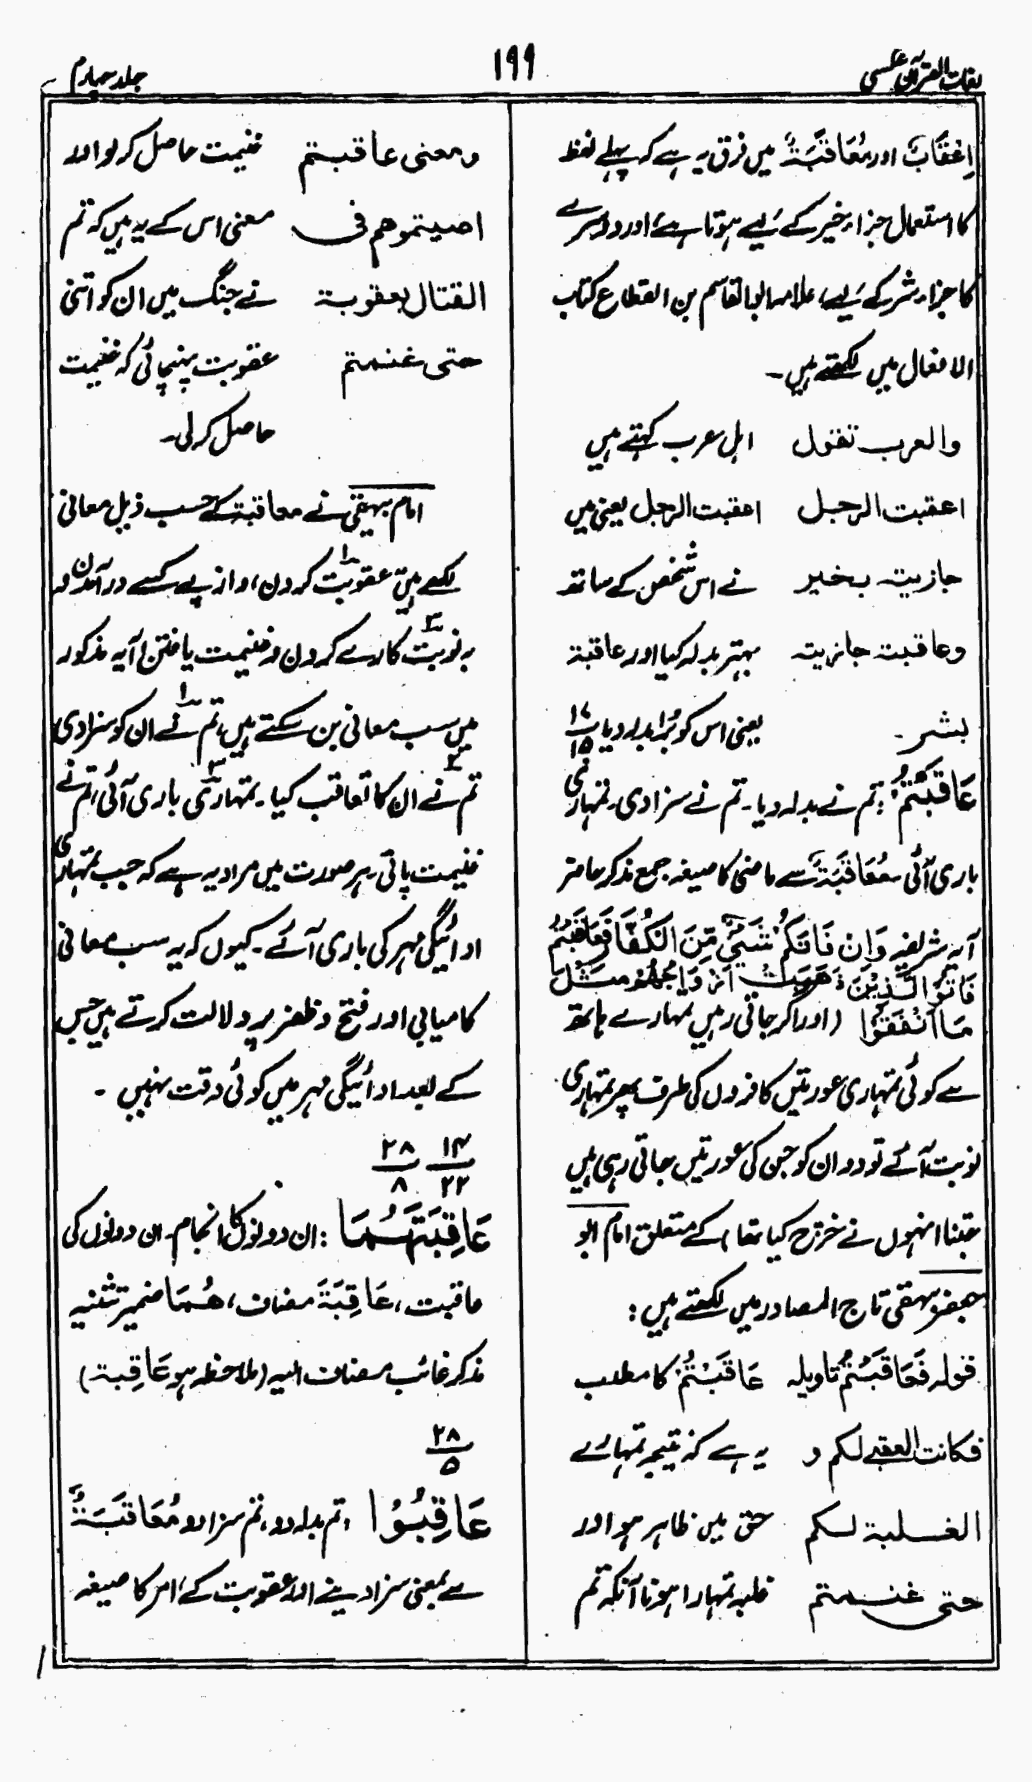 لغات القرآن عکسی
۱۹۹
جلد چہارم
اِعْقَابٌ اور مُعَاقَبَۃٌ میں فرق یہ ہے کہ پہلے لفظ
کا استعمال جزاء خیر کے لیے ہوتا ہے، اور دوسرے
کا جزاء شر کے لیے، علامہ ابوالقاسم بن القطاع کتاب
الافعال میں لکھتے ہیں۔
والعرب تقول اہل عرب کہتے ہیں
اعقبت الرجل اعقبت الرجل یعنی میں
جازیتہ بخیر نے اس شخص کے ساتھ
وعاقبتہ جازیتہ بہتر بدلہ کیا اور عاقبتہ
بشر۔ یعنی اس کو بُرا بدلہ دیا ۱۷/۱۵
عَاقَبْتُمْ: تم نے بدلہ دیا۔ تم نے سزا دی۔ تمہاری
باری آئی۔ مُعَاقَبَۃٌ سے ماضی کا صیغہ جمع مذکر حاضر
آیہ شریفہ وَاِنْ فَاتَكُمْ شَيْءٌ مِّنَ الْكُفَّارِ فَعَاقَبْتُمْ
فَاٰتُوا الَّذِيْنَ ذَهَبَتْ اَزْوَاجُهُمْ مِثْلَ
مَا اَنْفَقُوْا (اور اگر جاتی رہیں تمہارے ہاتھ
سے کوئی تمہاری عورتیں کافروں کی طرف پھر تمہاری
نوبت آئے تو دو ان کو جن کی عورتیں جاتی رہی ہیں
جتنا انہوں نے خرچ کیا تھا) کے متعلق امام ابو
جعفر بیہقی تاج المصادر میں لکھتے ہیں:
قولہ فَعَاقَبْتُمْ تاویلہ عَاقَبْتُمْ کا مطلب
فکانت العقبے لکم و یہ ہے کہ نتیجہ تمہارے
الغلبۃ لکم حق میں ظاہر ہو اور
حتی غنمتم غلبہ تمہارا ہو تا آنکہ تم
ومعنی عاقبتم غنیمت حاصل کر لو اور
اصبتموهم فی معنی اس کے یہ ہیں کہ تم
القتال بعقوبۃ نے جنگ میں ان کو اتنی
حتی غنمتم عقوبت پہنچائی کہ غنیمت
حاصل کر لی۔
امام بیہقی نے معاقبۃ کے حسب ذیل معانی
لکھے ہیں ۱ عقوبت کردن، و از پے کسے در آمدن و
۳ بہ نوبت کارے کردن و غنیمت یافتن آیہ مذکور
میں سب معانی بن سکتے ہیں، ۱ تم نے ان کو سزا دی
۲ تم نے ان کا تعاقب کیا۔ ۳ تمہاری باری آئی، تم نے
غنیمت پائی۔ ہر صورت میں مراد یہ ہے کہ جب تمہاری
ادائیگی مہر کی باری آئے۔ کیوں کہ یہ سب معانی
کامیابی اور فتح و ظفر پر دلالت کرتے ہیں جس
کے بعد ادائیگی مہر میں کوئی دقت نہیں۔
۱۴/۲۲ ۲۸/۸
عَاقِبَتَهُمَا: ان دونوں کا انجام۔ ان دونوں کی
عاقبت، عَاقِبَةَ مضاف، هُمَا ضمیر تثنیہ
مذکر غائب مضاف الیہ (ملاحظہ ہو عَاقِبۃ)
۲۸/۵
عَاقِبُوْا: تم بدلہ دو، تم سزا دو مُعَاقَبَةٌ
سے بمعنی سزا دینے اور عقوبت کے، امر کا صیغہ